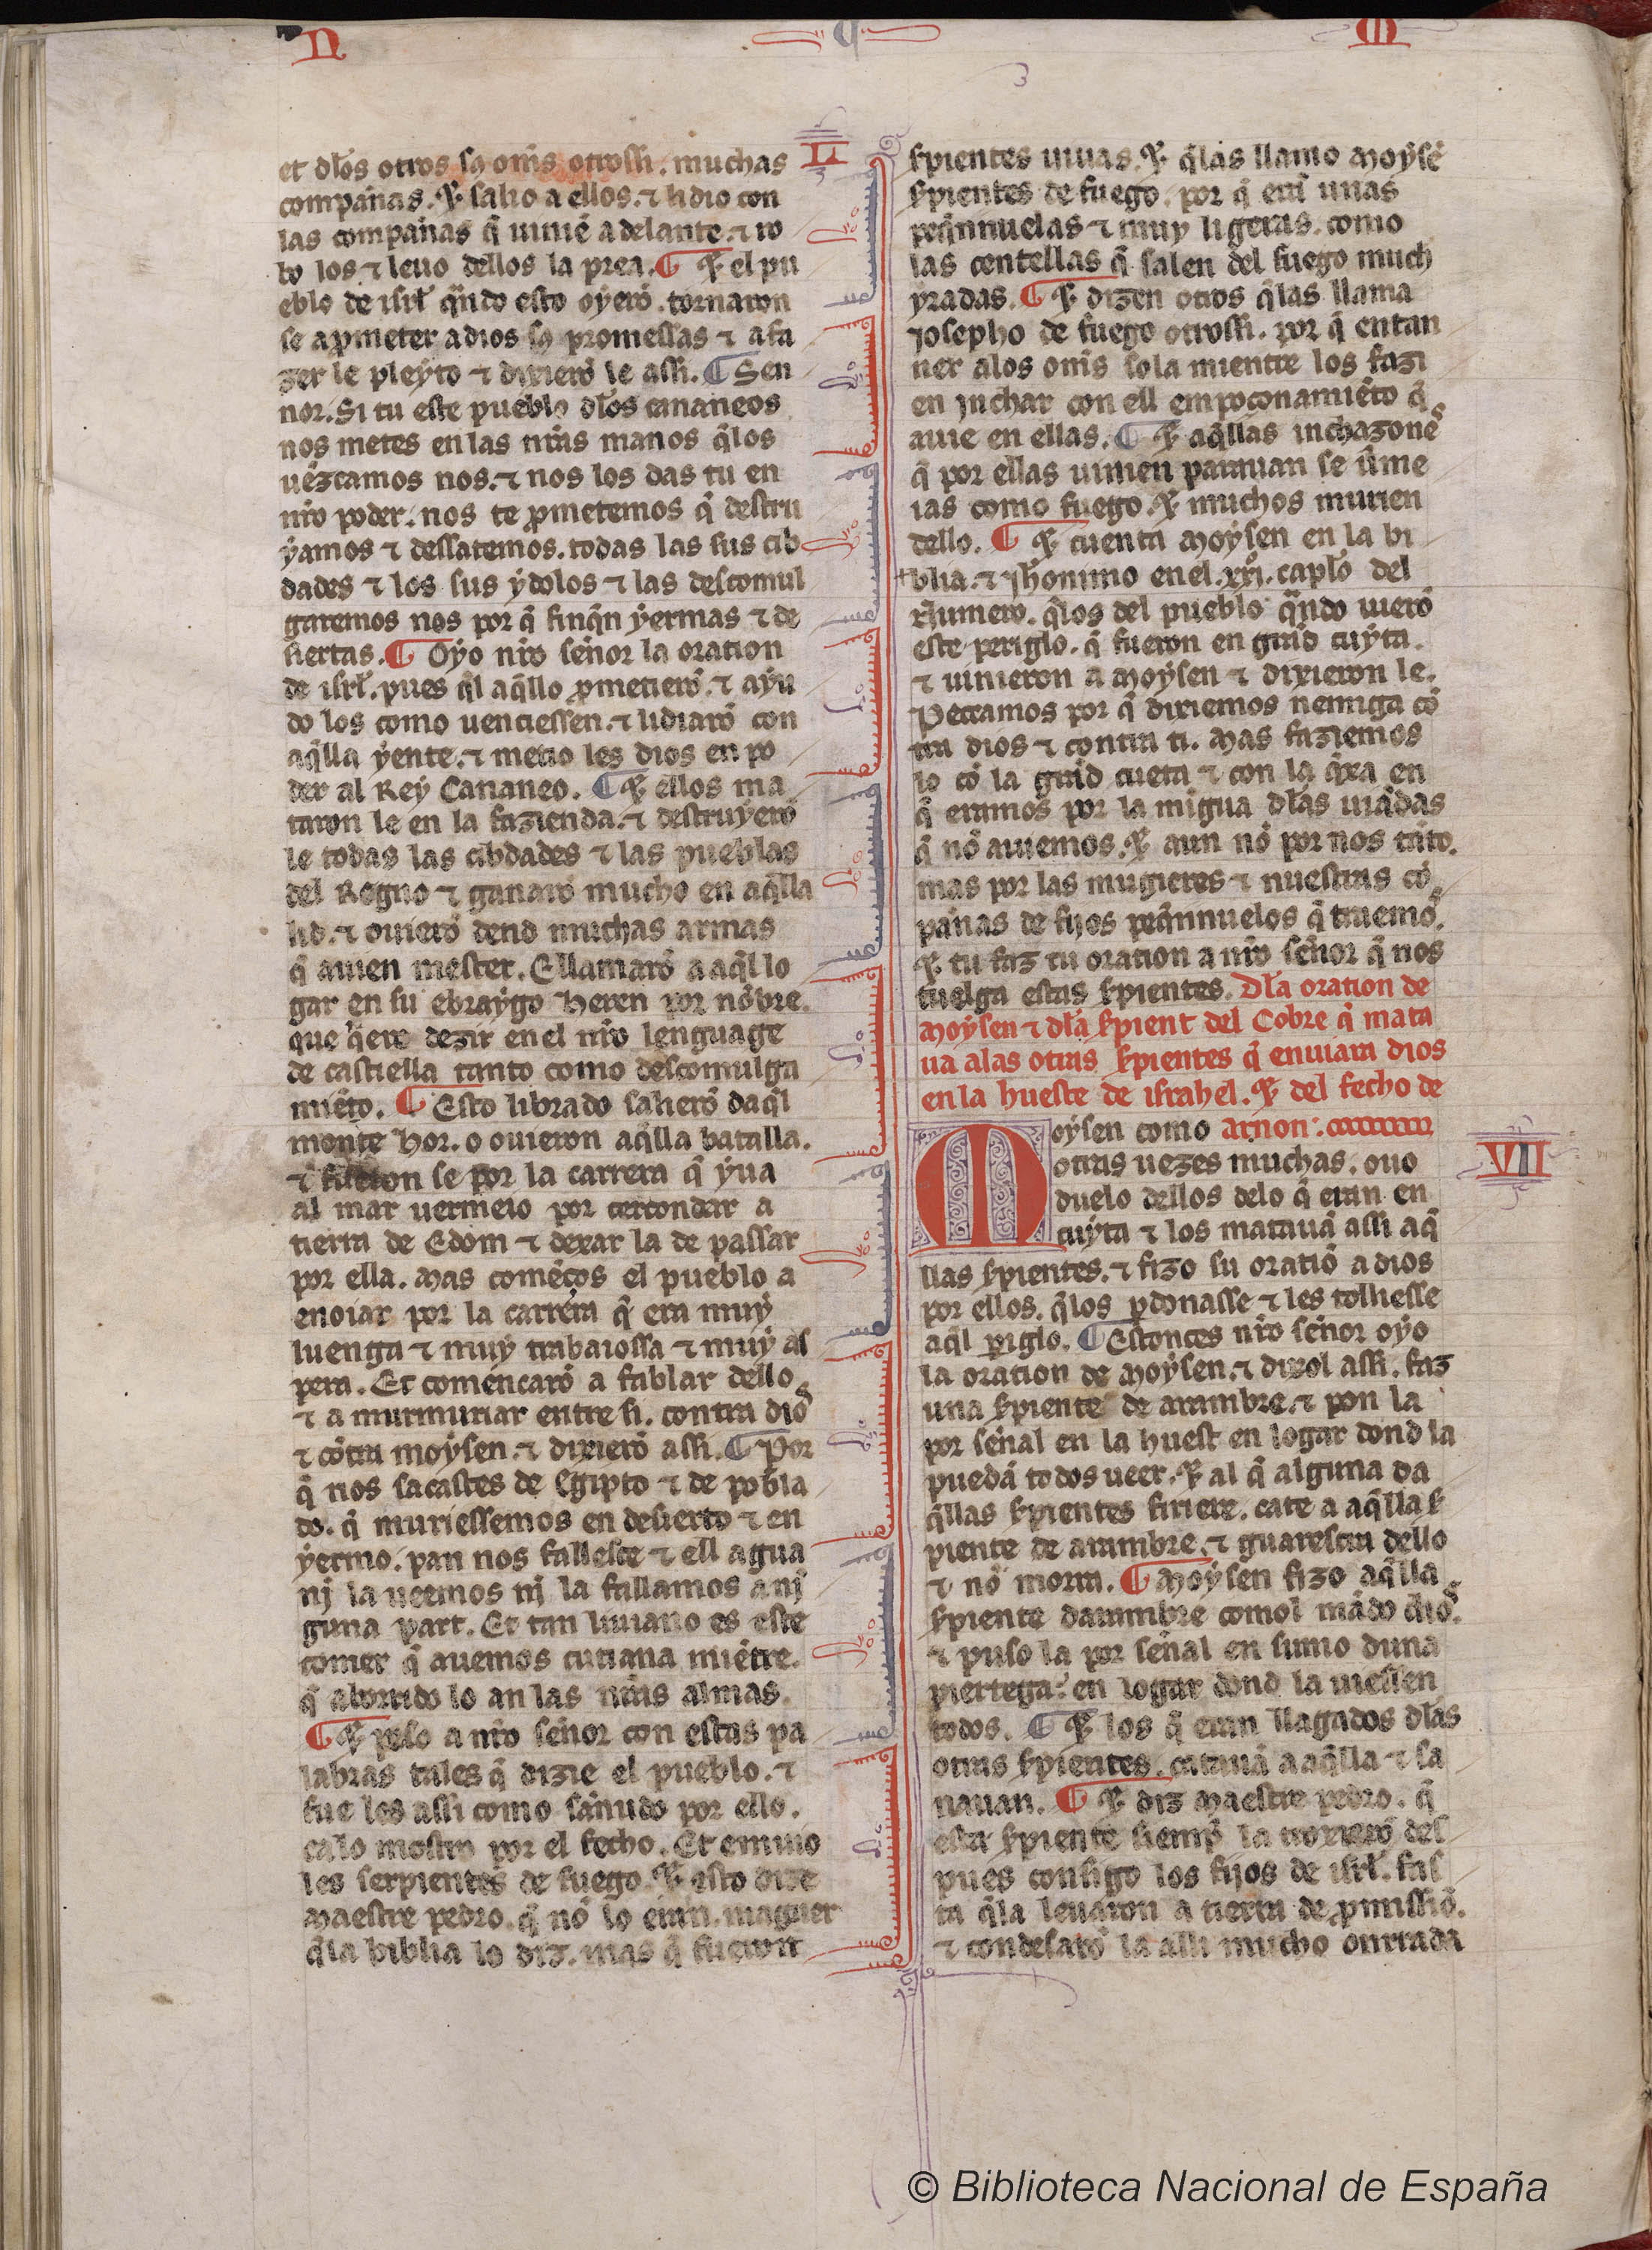 N
U
M
et dłos otros sꝯ om̃s otrossi. muchas
compannas. ⁊ salio a ellos. ⁊ lidio con
las compannas q̃ uiniẽ adelante. ⁊ ro
bo los ⁊ leuo dellos la prea. ¶ ⁊ el pu
eblo de isrł qñdo esto oyerõ. tornaron
se a ꝓmeter a dios sꝯ promessas ⁊ a fa
zer le pleyto ⁊ dixierõ le assi. ¶ Sen
nor. Si tu este pueblo dłos cananeos
nos metes en las nr̃as manos q̃los
uẽzcamos nos. ⁊ nos los das tu en
nr̃o poder. nos te ꝓmetemos q̃ destru
yamos ⁊ dessatemos. todas las sus cib
dades ⁊ los sus ydolos ⁊ las descomul
garemos nos por q̃ finq̃n yermas ⁊ de
siertas. ¶ Oyo nr̃o sen̄or la oration
de isrł. pues q̃l aq̃llo ꝓmetierõ. ⁊ ayu
do los como uenciessen. ⁊ lidiarõ con
aq̃lla yente. ⁊ metio les dios en po
der al Rey Cananeo. ¶ ⁊ ellos ma
taron le en la fazienda. ⁊ destruyerõ
le todas las cibdades ⁊ las pueblas
del Regno ⁊ ganarõ mucho en aq̃lla
lid. ⁊ ouierõ dend muchas armas
q̃ auien mester. E llamarõ a aq̃l lo
gar en su ebraygo Heren por nõbre.
que q̃ere dezir en el nr̃o lenguage
de castiella tanto como descomulga
miẽto. ¶ Esto librado salierõ daq̃l
monte Hor. o ouieron aq̃lla batalla.
⁊ fueron se por la carrera q̃ yua
al mar uermeio por cercondar a
tierra de Edom ⁊ dexar la de passar
por ella. Mas comẽços el pueblo a
enoiar por la carrera q̃ era muy
luenga ⁊ muy trabaiossa ⁊ muy as
pera. Et comẽncarõ a fablar dello
⁊ a murmuriar entre si. contra dios
⁊ cõtra moysen. ⁊ dixierõ assi. ¶ Por
q̃ nos sacastes de Egipto ⁊ de pobla
do. q̃ muriessemos en desierto ⁊ en
yermo. pan nos falleste ⁊ ell agua
nj la ueemos nj la fallamos a nj
guna part. Et tan liuiano es este
comer q̃ auemos cutiana miẽtre.
q̃ aborrido lo an las nr̃as almas.
¶ ⁊ peso a nr̃o sen̄or con estas pa
labras tales q̃ dizie el pueblo. ⁊
fue les assi como san̄udo por ello.
ca lo mostro por el fecho. Et enuio
les serpientes de fuego. ⁊ esto dize
Maestre pedro. q̃ nõ lo eran. maguer
q̃la biblia lo diz. mas q̃ fueron
L
s̃pientes uiuas. ⁊ q̃las llamo Moysẽ
s̃pientes de fuego. por q̃ erã unas
peq̃nnuelas ⁊ muy ligeras. como
las centellas q̃ salen del fuego much
yradas. ¶ ⁊ dizen otros q̃las llama
Josepho de fuego otrossi. por q̃ en tan
ner alos om̃s sola mientre los fazi
en jnchar con ell empoçonamiẽto q̃
auie en ellas. ¶ ⁊ aq̃llas inchazones
q̃ por ellas uinien parauan se ũme
ias como fuego. ⁊ muchos murien
dello. ¶ ⁊ cuenta Moysen en la bi
blia. ⁊ Jh̃onimo en el .xxj. capł̃o del
Ñumero. q̃los del pueblo qñdo uierõ
este periglo. q̃ fueron en grãd cuyta.
⁊ uinieron a Moysen ⁊ dixieron le.
Peccamos por q̃ dixiemos nemiga cõ
tra dios ⁊ contra ti. Mas faziemos
lo cõ la grãd cueta ⁊ con la q̃xa en
q̃ eramos por la mingua dłas uiãdas
q̃ nõ auemos. ⁊ aun nõ por nos tãto.
mas por las mugieres ⁊ nuestras cõ
pan̄as de fijos peq̃nnuelos q̃ traemos.
⁊ tu faz tu oration a nr̃o sen̄or q̃ nos
tuelga estas s̃pientes. Dła oration de
Moysen ⁊ dła s̃pient del Cobre q̃ mata
ua alas otras s̃pientes q̃ enuiara dios
en la hueste de israhel. ⁊ del fecho de
Moysen como arnon.
VII
otras uezes muchas. ouo
duelo dellos delo q̃ eran en
cuyta ⁊ los matauã assi aq̃
llas s̃pientes. ⁊ fizo su oratiõ a dios
por ellos. q̃los ꝑdonasse ⁊ les tolliesse
aq̃l ꝑiglo. ¶ Estonces nr̃o sen̄or oyo
la oration de Moysen. ⁊ dixol assi. faz
una s̃piente de arambre. ⁊ pon la
por sen̄al en la huest en logar dond la
puedã todos ueer. ⁊ al q̃ alguna da
q̃llas s̃pientes firiere. cate a aq̃lla s̃
piente de arambre. ⁊ guarescra dello
⁊ nõ morra. ¶ Moysen fizo aq̃lla
s̃piente darambre comol mãdo dios.
⁊ puso la por sen̄al en somo duna
piertega. en logar dond la uiessen
todos. ¶ ⁊ los q̃ eran llagados dłas
otras s̃pientes. catauã a aq̃lla ⁊ sa
nauan. ¶ ⁊ diz Maestre pedro. q̃
esta s̃piente siemp̃ la troxierõ des
pues consigo los fijos de isrł. fas
ta q̃la leuaron a tierra de ꝓmissiõ.
⁊ condesarõ la alli mucho onrrada
© Biblioteca Nacional de España